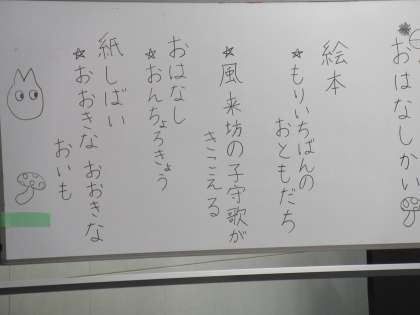 おはなしかい
絵本
☆もりいちばんの
おともだち
☆風来坊の子守歌が
きこえる
おはなし
☆おんちょろきょう
紙しばい
☆おおきな おおきな
おいも